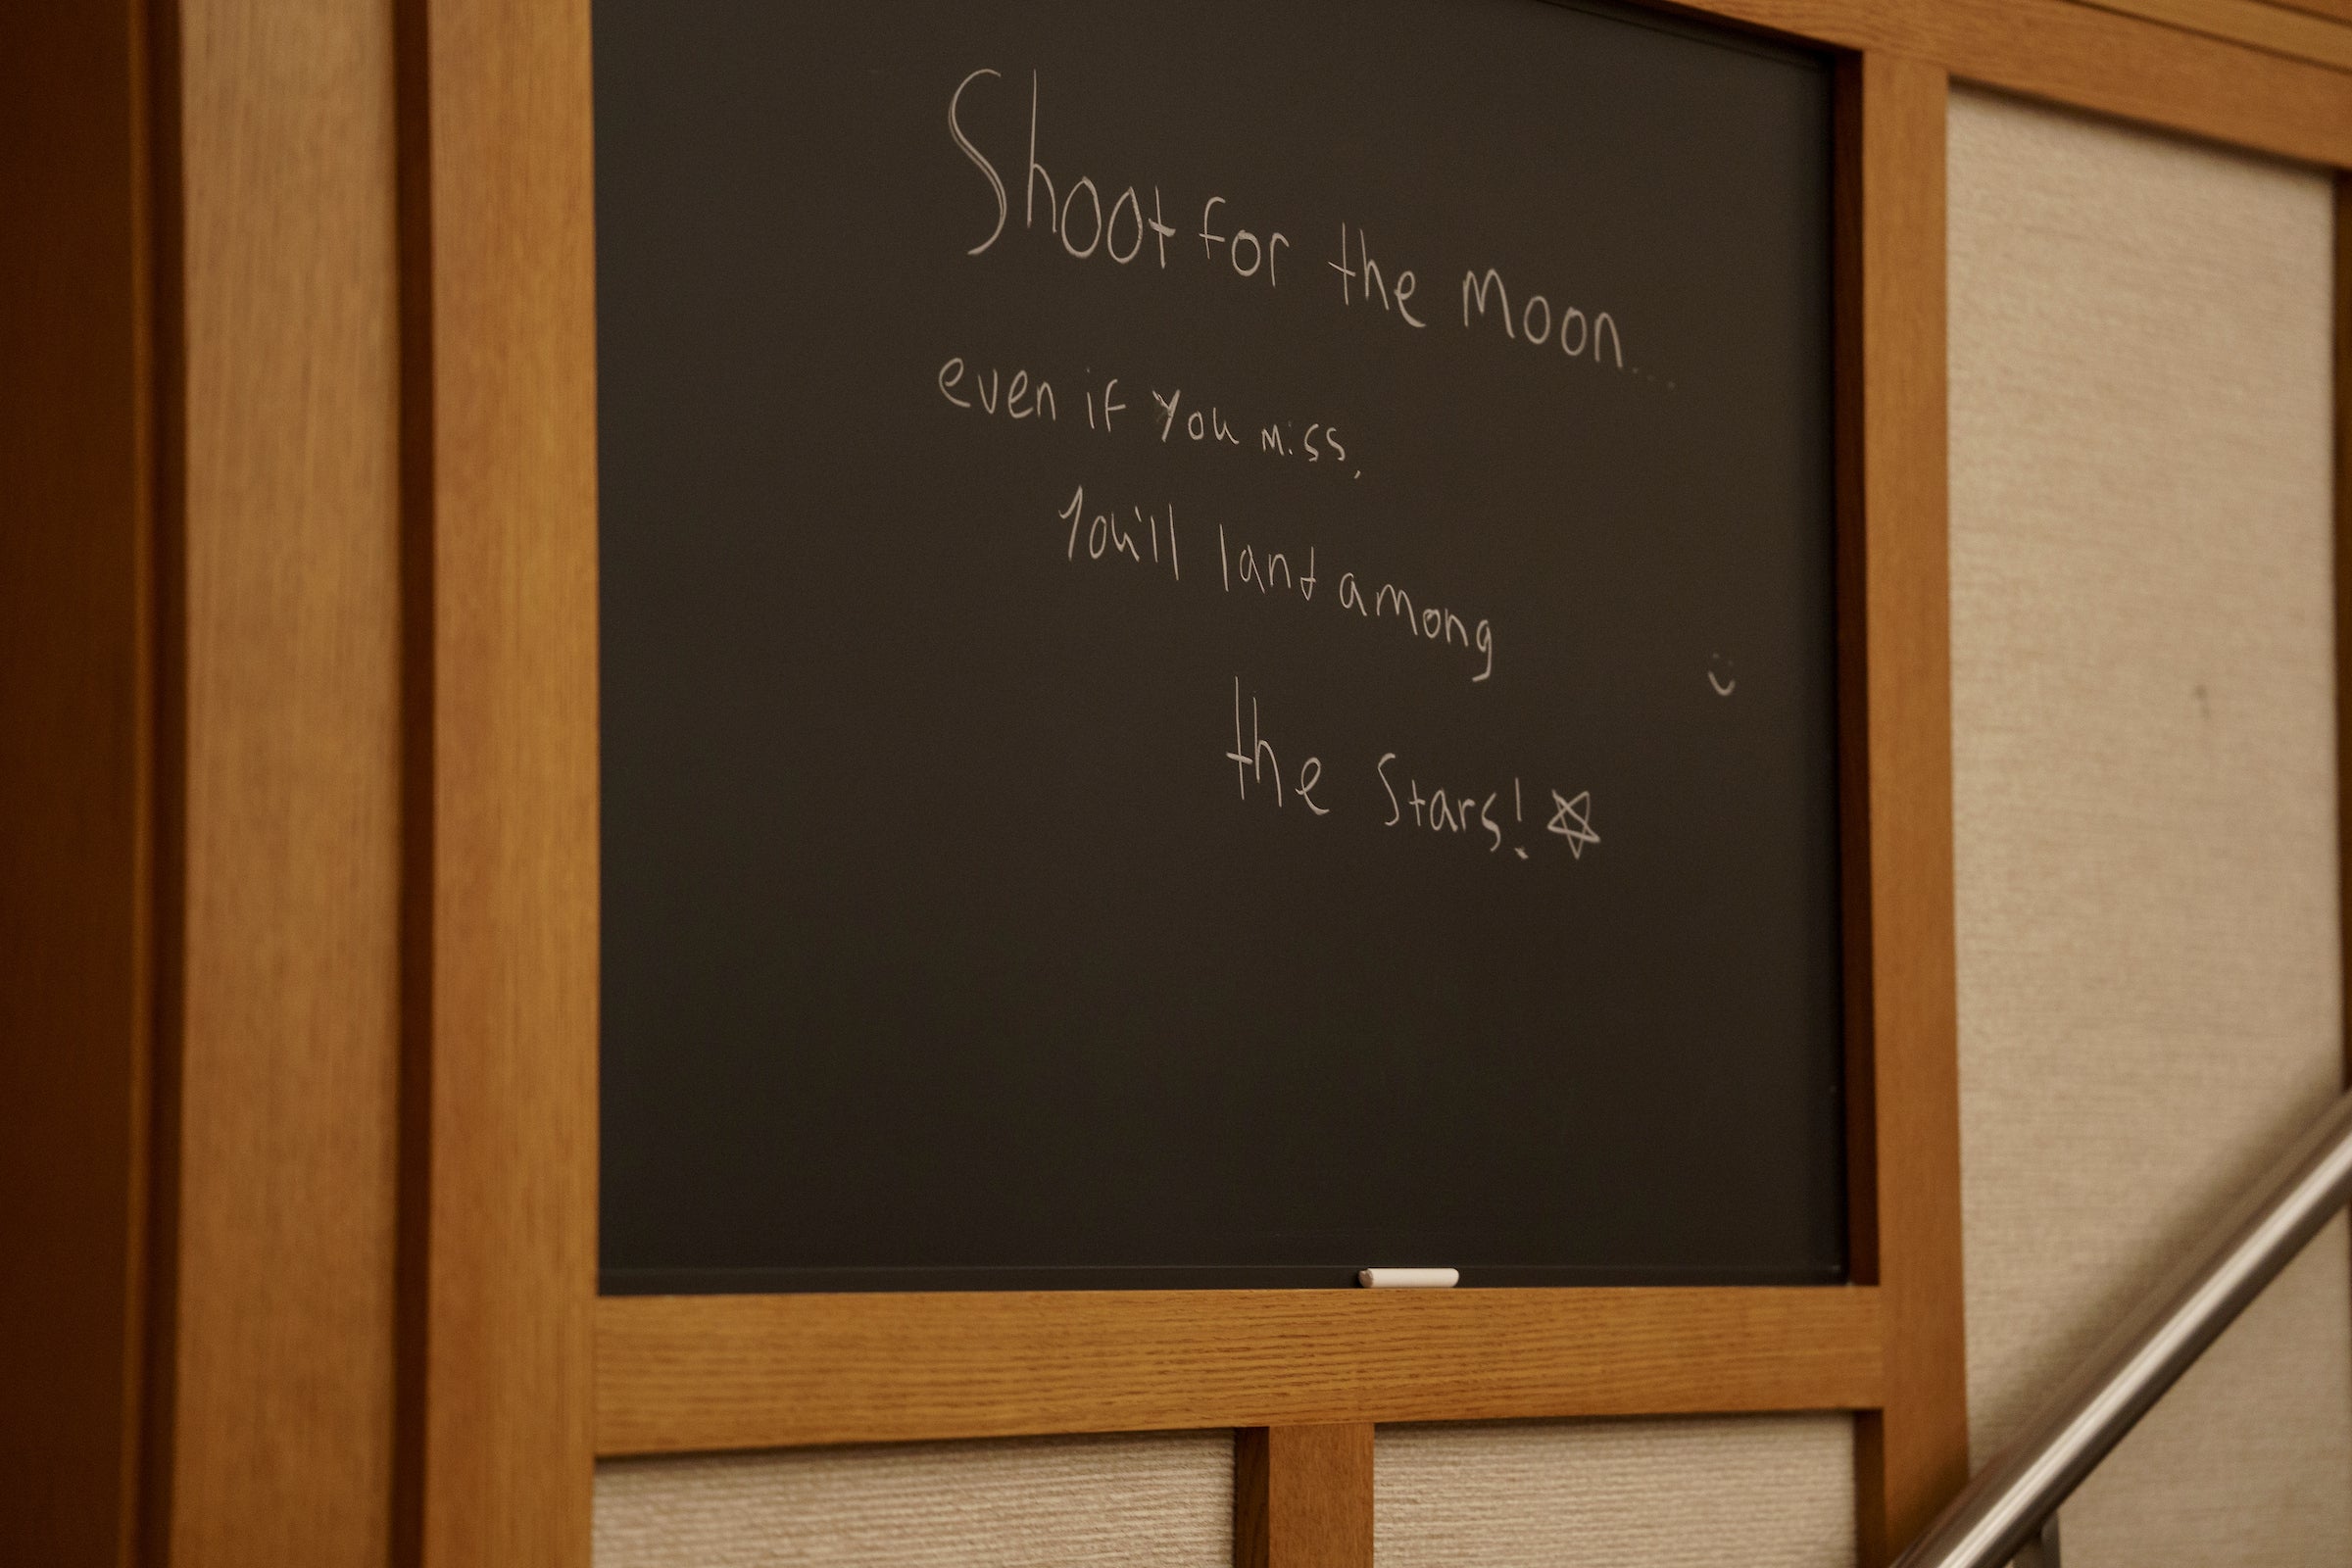 Shoot for the Moon...
even if you miss,
You'll land among
the Stars!